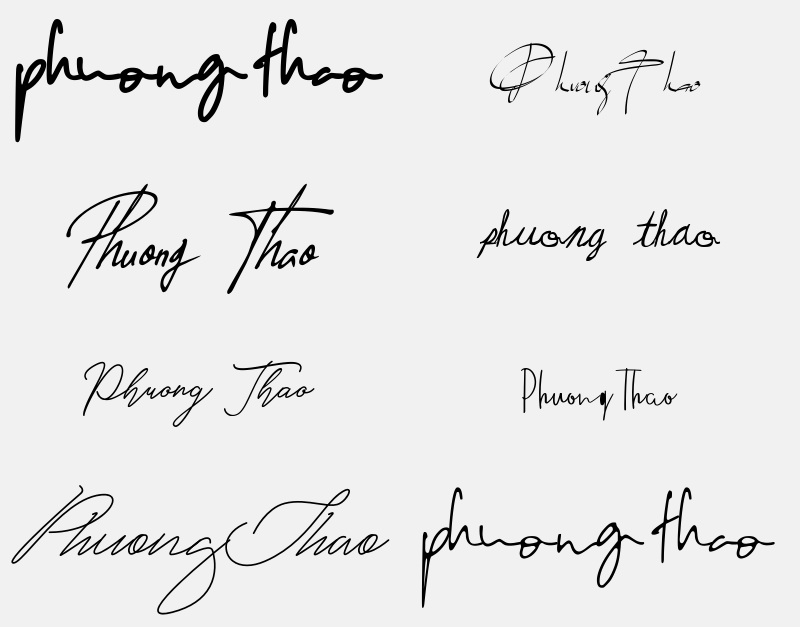 phuong thao
Phuong Thao
Phuong Thao
phuong thao
Phuong Thao
Phuong Thao
Phuong Thao
phuong thao